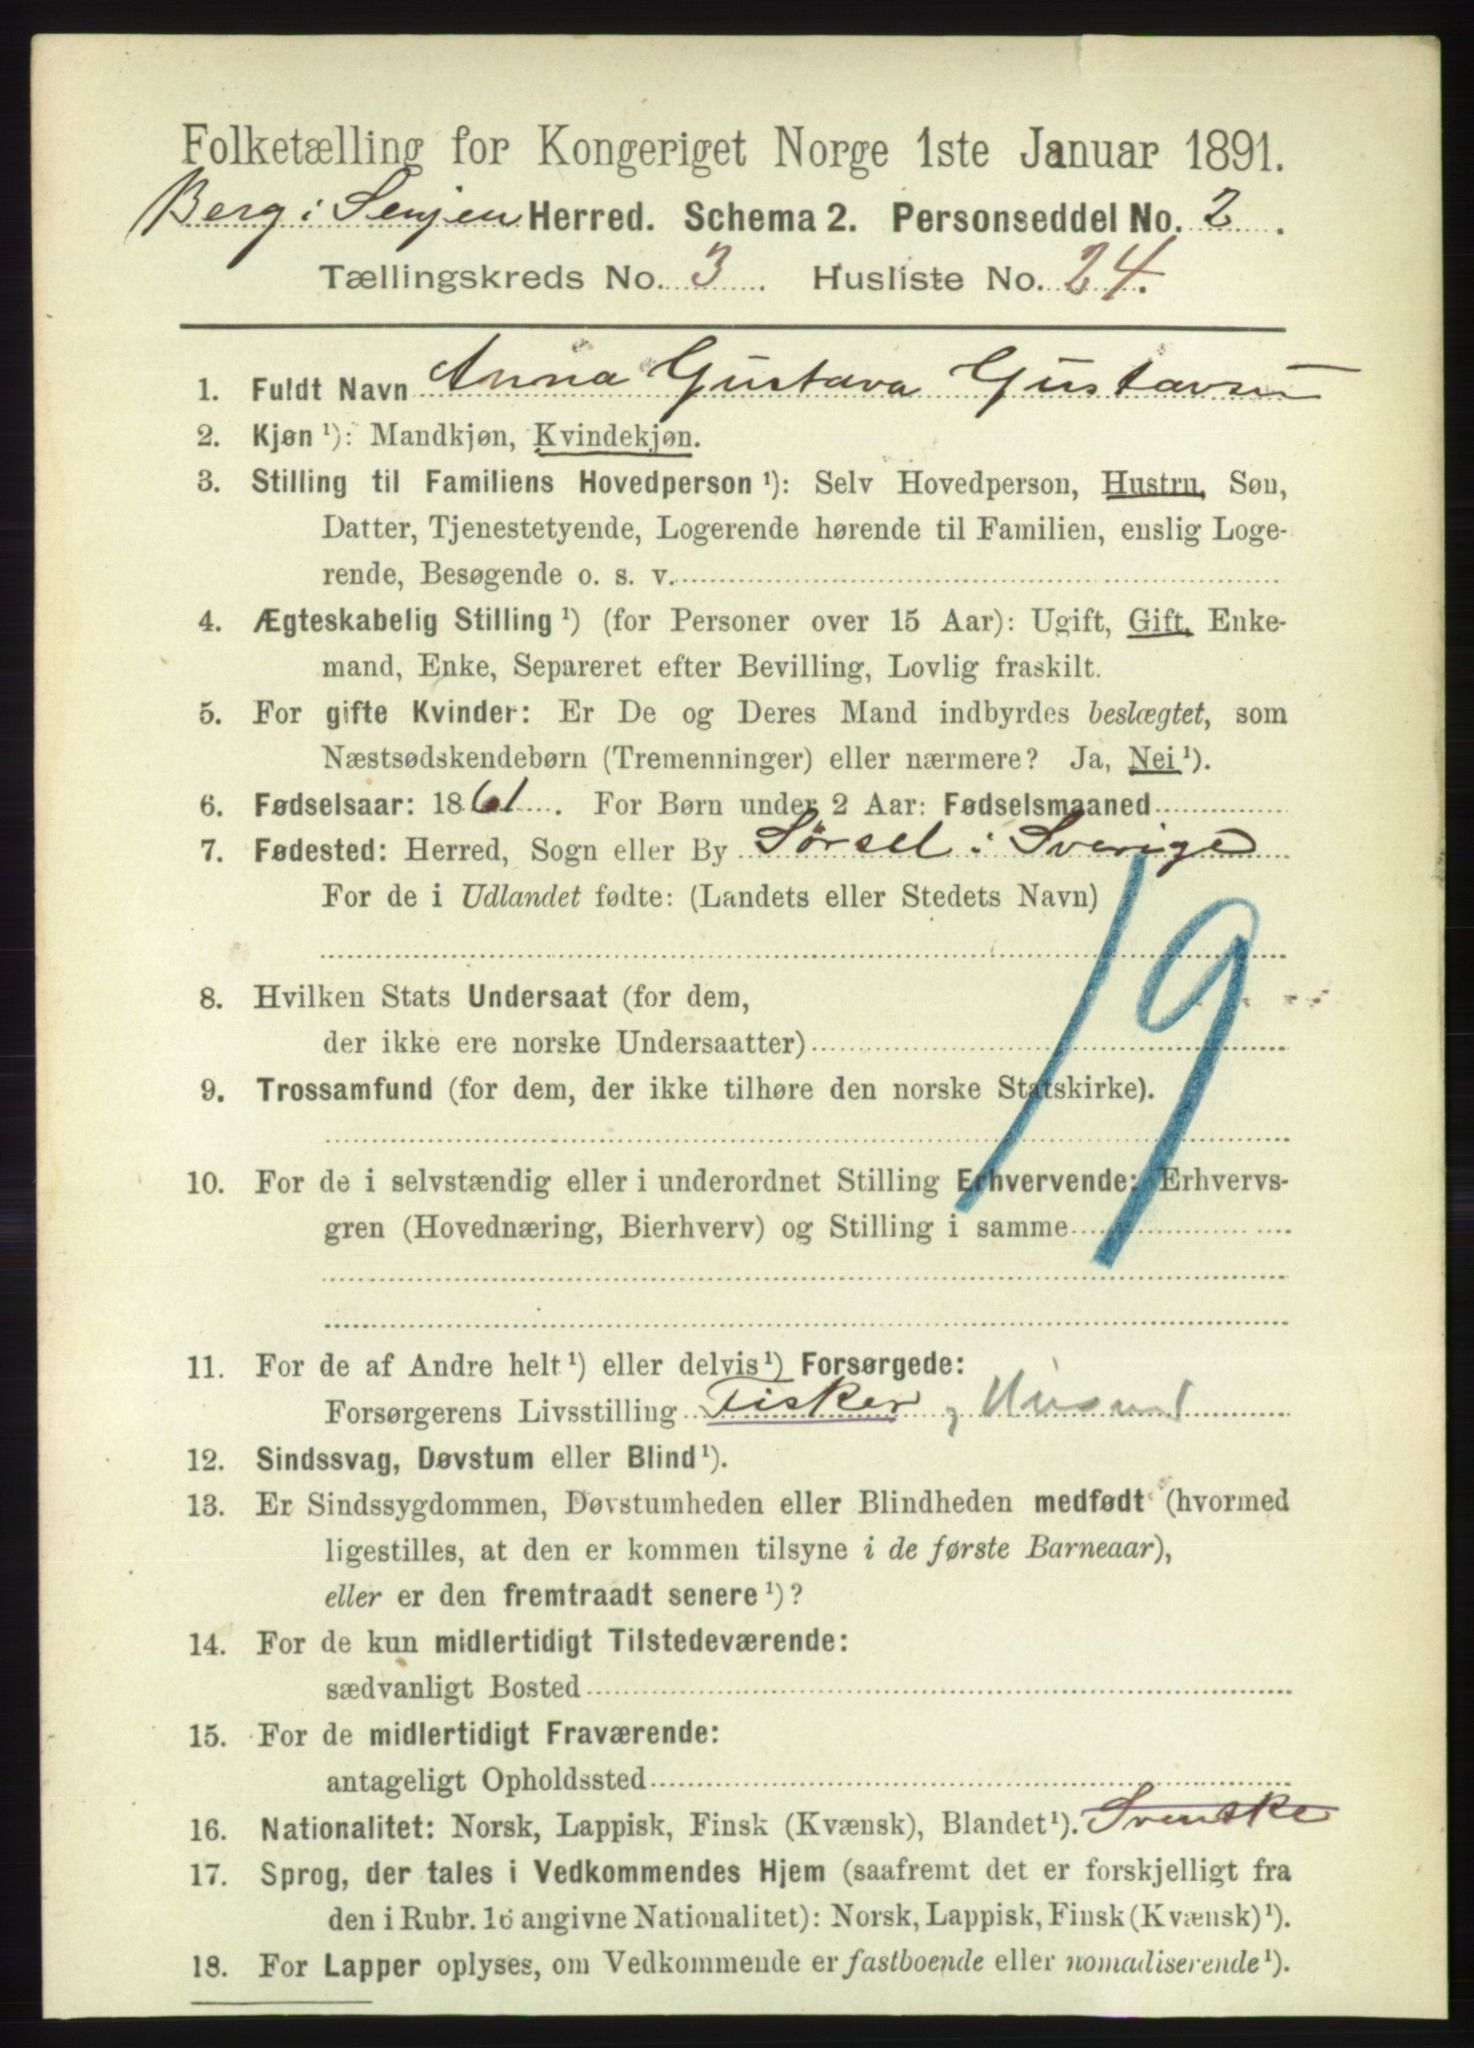 Folketælling for Kongeriget Norge 1ste Januar 1891.
Berg i Senjen Herred. Schema 2. Personseddel No. 2.
Tællingskreds No. 3. Husliste No. 24.
1. Fuldt Navn Anna Gustava Gustavsen
2. Kjøn ¹): Mandkjøn, Kvindekjøn.
3. Stilling til Familiens Hovedperson ¹): Selv Hovedperson, Hustru, Søn,
Datter, Tjenestetyende, Logerende hørende til Familien, enslig Loge-
rende, Besøgende o. s. v.
4. Ægteskabelig Stilling ¹) (for Personer over 15 Aar): Ugift, Gift, Enke-
mand, Enke, Separeret efter Bevilling, Lovlig fraskilt.
5. For gifte Kvinder: Er De og Deres Mand indbyrdes beslægtet, som
Næstsødskendebørn (Tremenninger) eller nærmere? Ja, Nei ¹).
6. Fødselsaar: 1861. For Børn under 2 Aar: Fødselsmaaned
7. Fødested: Herred, Sogn eller By Sörsel i Sverige
For de i Udlandet fødte: (Landets eller Stedets Navn)
19
8. Hvilken Stats Undersaat (for dem,
der ikke ere norske Undersaatter)
9. Trossamfund (for dem, der ikke tilhøre den norske Statskirke).
10. For de i selvstændig eller i underordnet Stilling Erhvervende: Erhvervs-
gren (Hovednæring, Bierhverv) og Stilling i samme
11. For de af Andre helt ¹) eller delvis ¹) Forsørgede:
Forsørgerens Livsstilling Fisker
12. Sindssvag, Døvstum eller Blind ¹).
13. Er Sindssygdommen, Døvstumheden eller Blindheden medfødt (hvormed
ligestilles, at den er kommen tilsyne i de første Barneaar),
eller er den fremtraadt senere ¹)?
14. For de kun midlertidigt Tilstedeværende:
sædvanligt Bosted
15. For de midlertidigt Fraværende:
antageligt Opholdssted
16. Nationalitet: Norsk, Lappisk, Finsk (Kvænsk), Blandet ¹). Svenske
17. Sprog, der tales i Vedkommendes Hjem (saafremt det er forskjelligt fra
den i Rubr. 16 angivne Nationalitet): Norsk, Lappisk, Finsk (Kvænsk) ¹).
18. For Lapper oplyses, om Vedkommende er fastboende eller nomadiserende ¹).